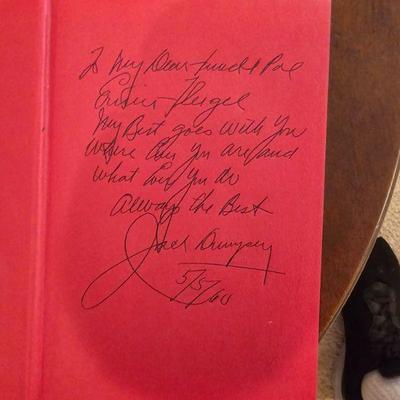 To My Dear friend & Pal
Ernie Fliegel
My Best goes with You
Where Ever You are and
what Ever You do
Always the Best
Jack Dempsey
5/5/60